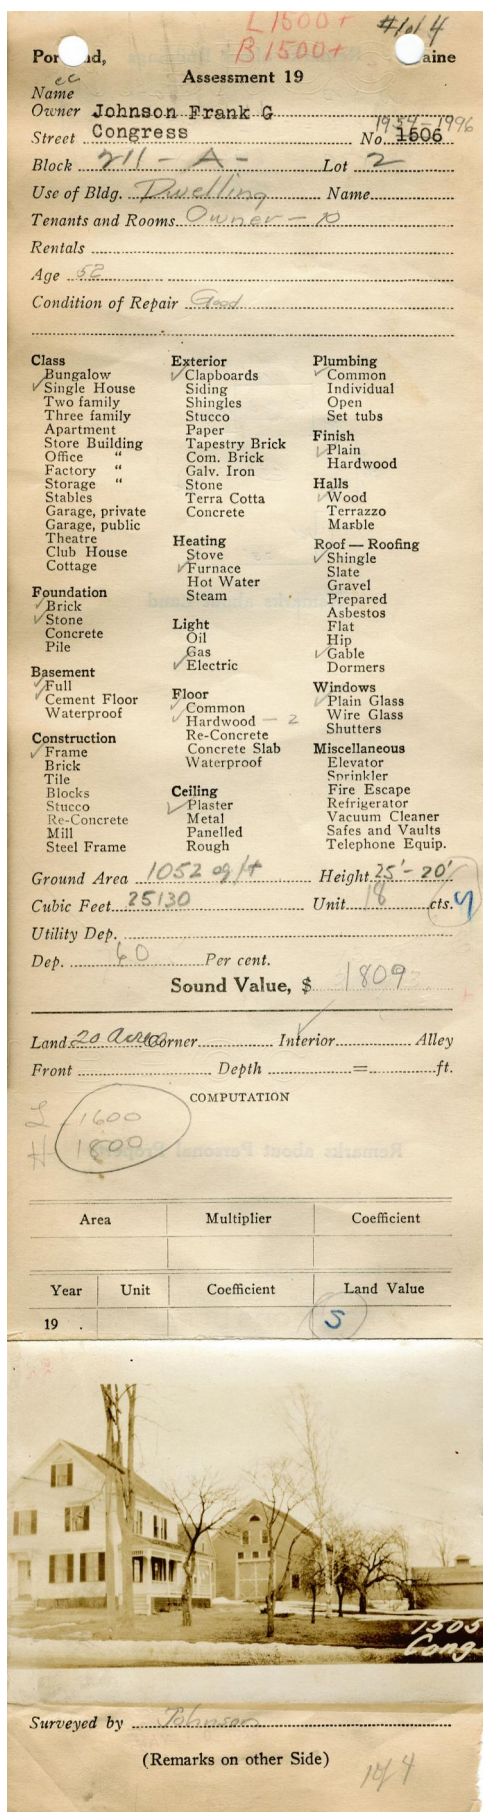 L 1500+ #1 of 4
B 1500+
Por nd, aine
Assessment 19
Name
Owner Johnson Frank G
Street Congress No. 1606 1954-1996
Block 211 - A - Lot 2
Use of Bldg. Dwelling Name
Tenants and Rooms Owner - 10
Rentals
Age 52
Condition of Repair Good
Class
Bungalow
Single House
Two family
Three family
Apartment
Store Building
Office "
Factory "
Storage "
Stables
Garage, private
Garage, public
Theatre
Club House
Cottage
Foundation
Brick
Stone
Concrete
Pile
Basement
Full
Cement Floor
Waterproof
Construction
Frame
Brick
Tile
Blocks
Stucco
Re-Concrete
Mill
Steel Frame
Exterior
Clapboards
Siding
Shingles
Stucco
Paper
Tapestry Brick
Com. Brick
Galv. Iron
Stone
Terra Cotta
Concrete
Heating
Stove
Furnace
Hot Water
Steam
Light
Oil
Gas
Electric
Floor
Common
Hardwood - 2
Re-Concrete
Concrete Slab
Waterproof
Ceiling
Plaster
Metal
Panelled
Rough
Plumbing
Common
Individual
Open
Set tubs
Finish
Plain
Hardwood
Halls
Wood
Terrazzo
Marble
Roof — Roofing
Shingle
Slate
Gravel
Prepared
Asbestos
Flat
Hip
Gable
Dormers
Windows
Plain Glass
Wire Glass
Shutters
Miscellaneous
Elevator
Sprinkler
Fire Escape
Refrigerator
Vacuum Cleaner
Safes and Vaults
Telephone Equip.
Ground Area 1052 sq ft Height 25'-20'
Cubic Feet 25130 Unit 18 cts. S
Utility Dep.
Dep. 60 Per cent.
Sound Value, $ 1809
Land 20 Acres Corner Interior Alley
Front Depth = ft.
COMPUTATION
L - 1600
H - 1800
Area Multiplier Coefficient
Year Unit Coefficient Land Value
19 . S
1505
Cong
Surveyed by Johnson
(Remarks on other Side)
1 of 4